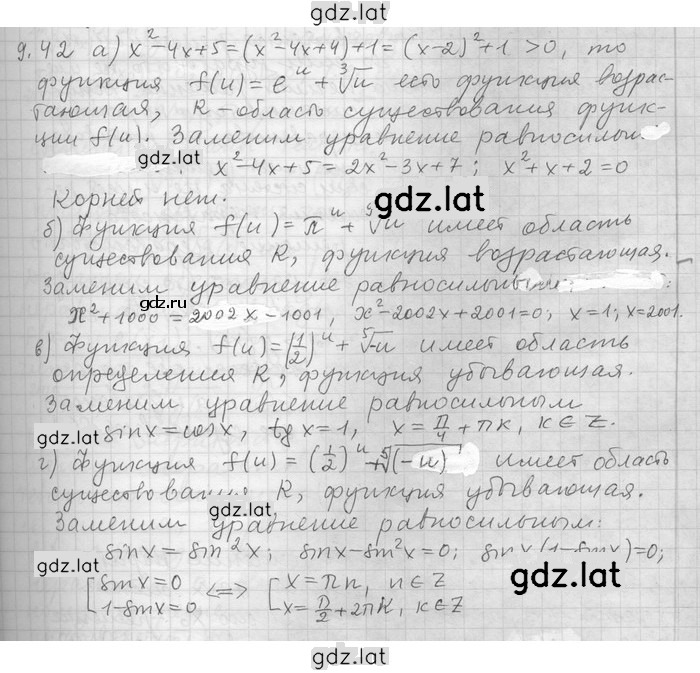 gdz.lat
9.42 а) x²-4x+5=(x²-4x+4)+1=(x-2)²+1 >0, то
функция f(u)=e^u+∛u есть функция возрас-
тающая, R-область существования функ-
ции f(u). Заменим уравнение равносильн
gdz.lat x²-4x+5=2x²-3x+7; x²+x+2=0
gdz.lat
Корней нет.
б) Функция f(u)=π^u+⁵√u имеет область
существования R, функция возрастающая.
Заменим уравнение равносильным:
gdz.ru
x²+1000=2002x-1001, x²-2002x+2001=0; x=1; x=2001.
в) Функция f(u)=(1/2)^u+⁵√-u имеет область
определения R, функция убывающая.
Заменим уравнение равносильным
gdz.lat sinx=cosx, tgx=1, x=π/4+πk, k∈Z.
г) Функция f(u)=(1/2)^u+⁵√(-u) имеет область
существован R, функция убывающая.
gdz.lat
Заменим уравнение равносильным:
sinx=sin²x; sinx-sin²x=0; sinx(1-sinx)=0;
gdz.lat
[sinx=0 <=> [x=πn, n∈Z
1-sinx=0 x=π/2+2πk, k∈Z
gdz.lat
gdz.lat